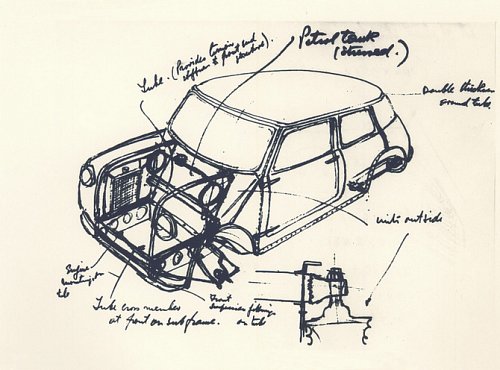 Petrol tank
(stressed.)
Tube. (Provides torsion and
stiffness to front
structure).
Double thickness
around tube
units outside
Engine
mounting on
tube
Tube cross member
at front on subframe.
Front
suspension fittings
on tube